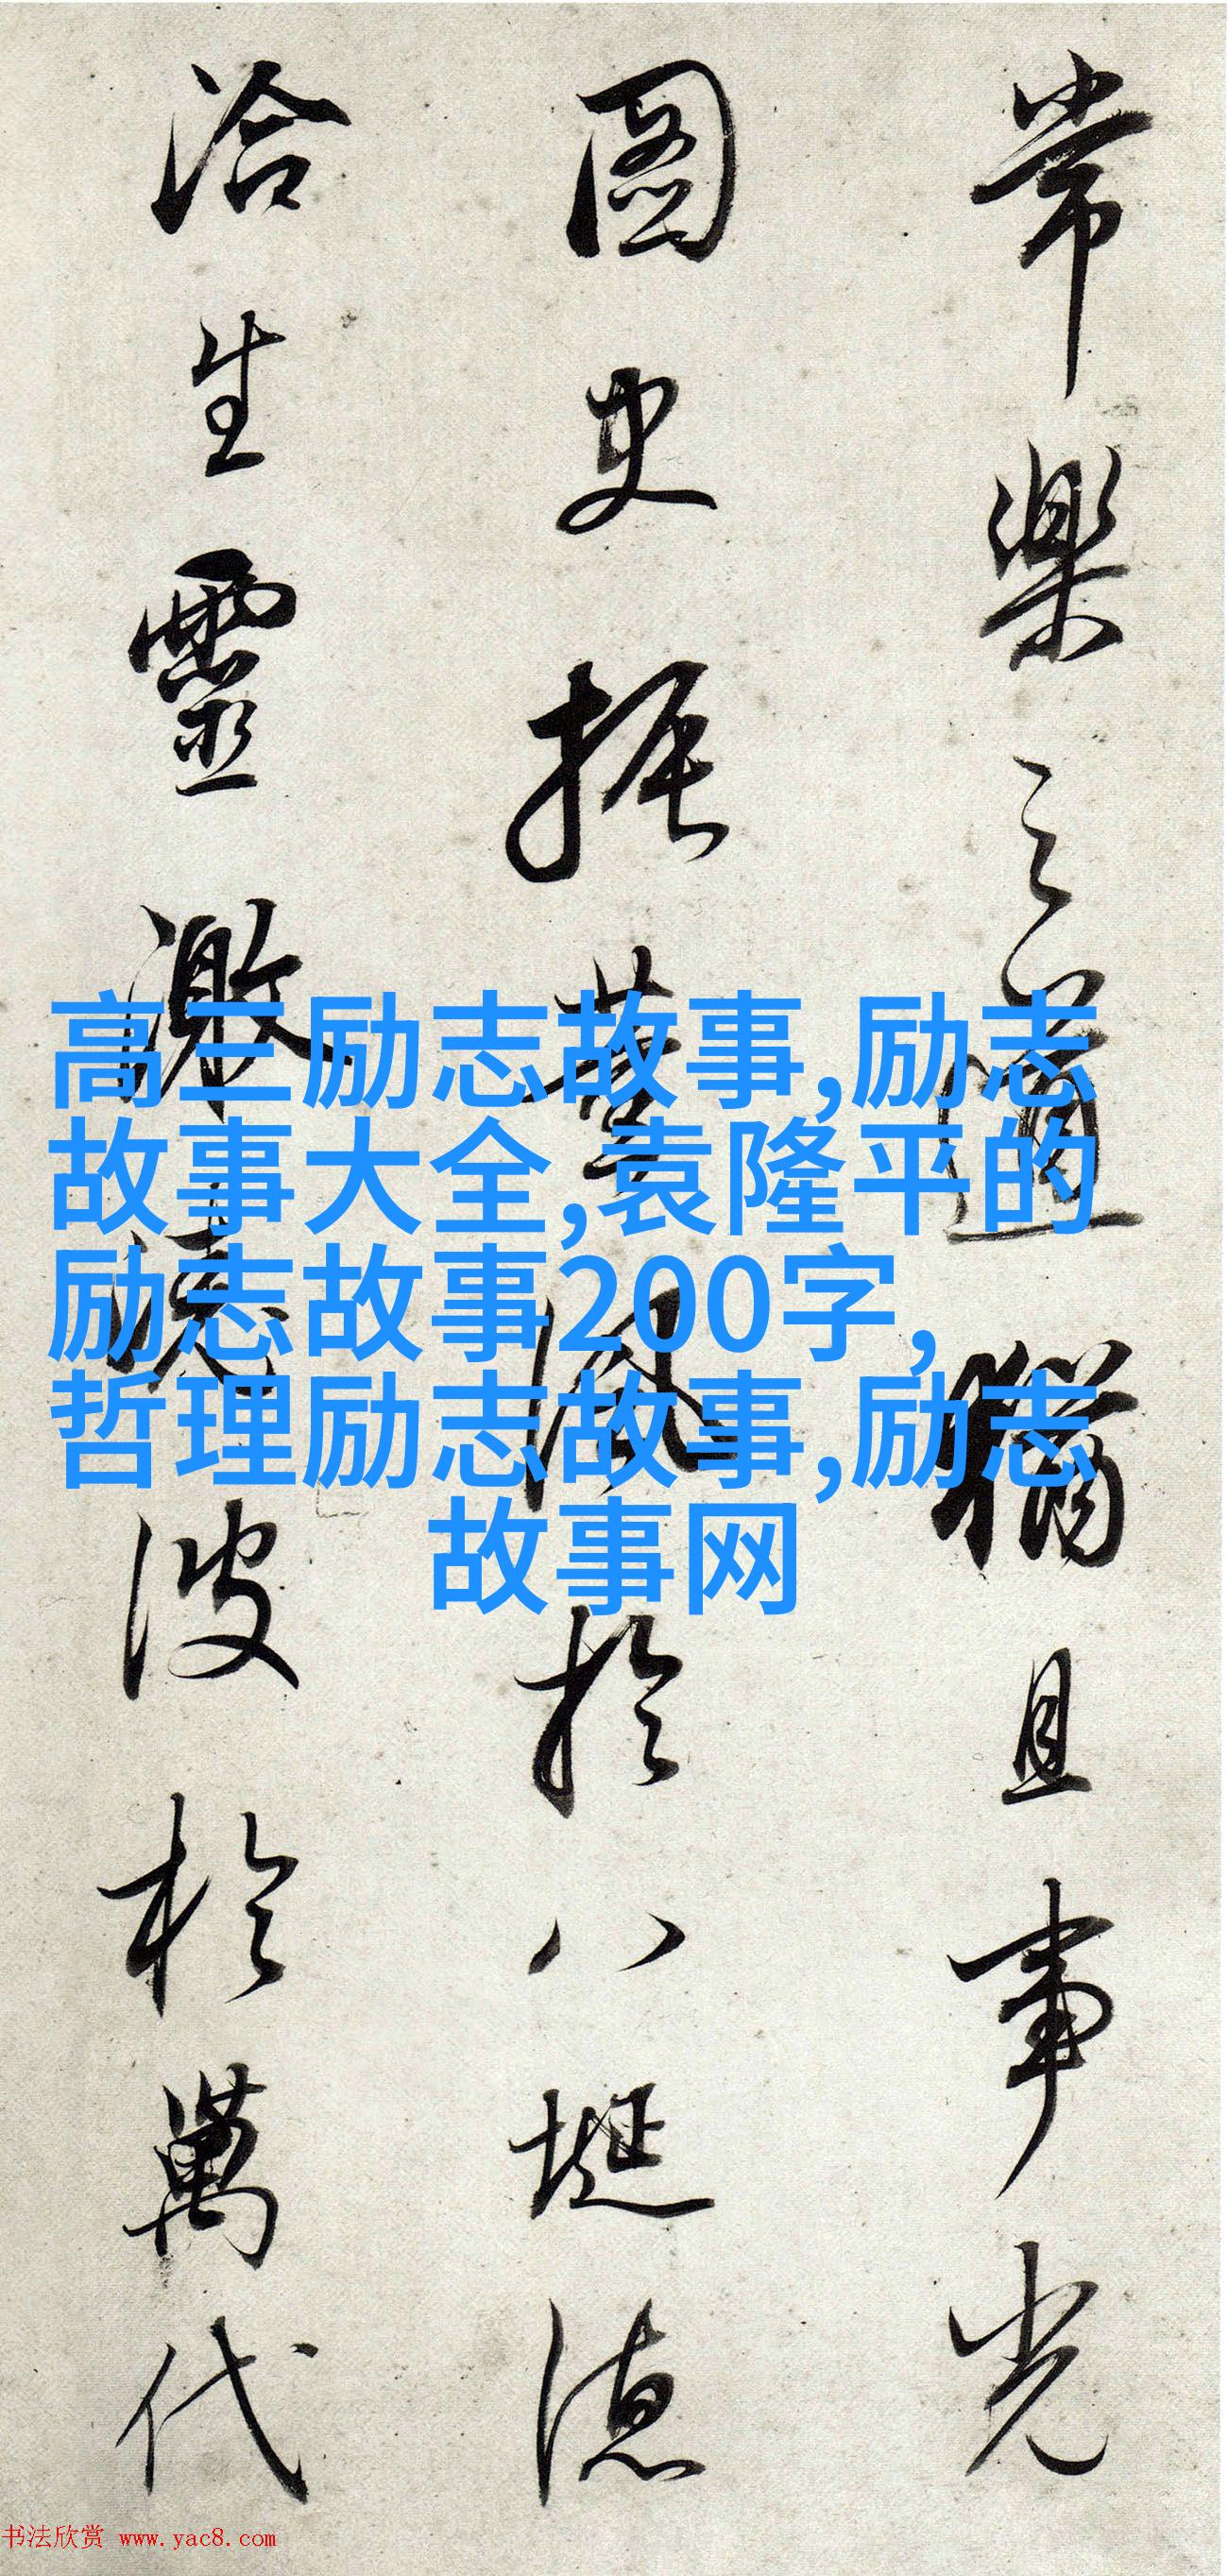 常樂之道猶且事光
圖史振芳風於八埏德
洽生靈激澆波於萬代
高三励志故事,励志
故事大全,袁隆平的
励志故事200字,
哲理励志故事,励志
故事网
书法欣赏 www.yac8.com